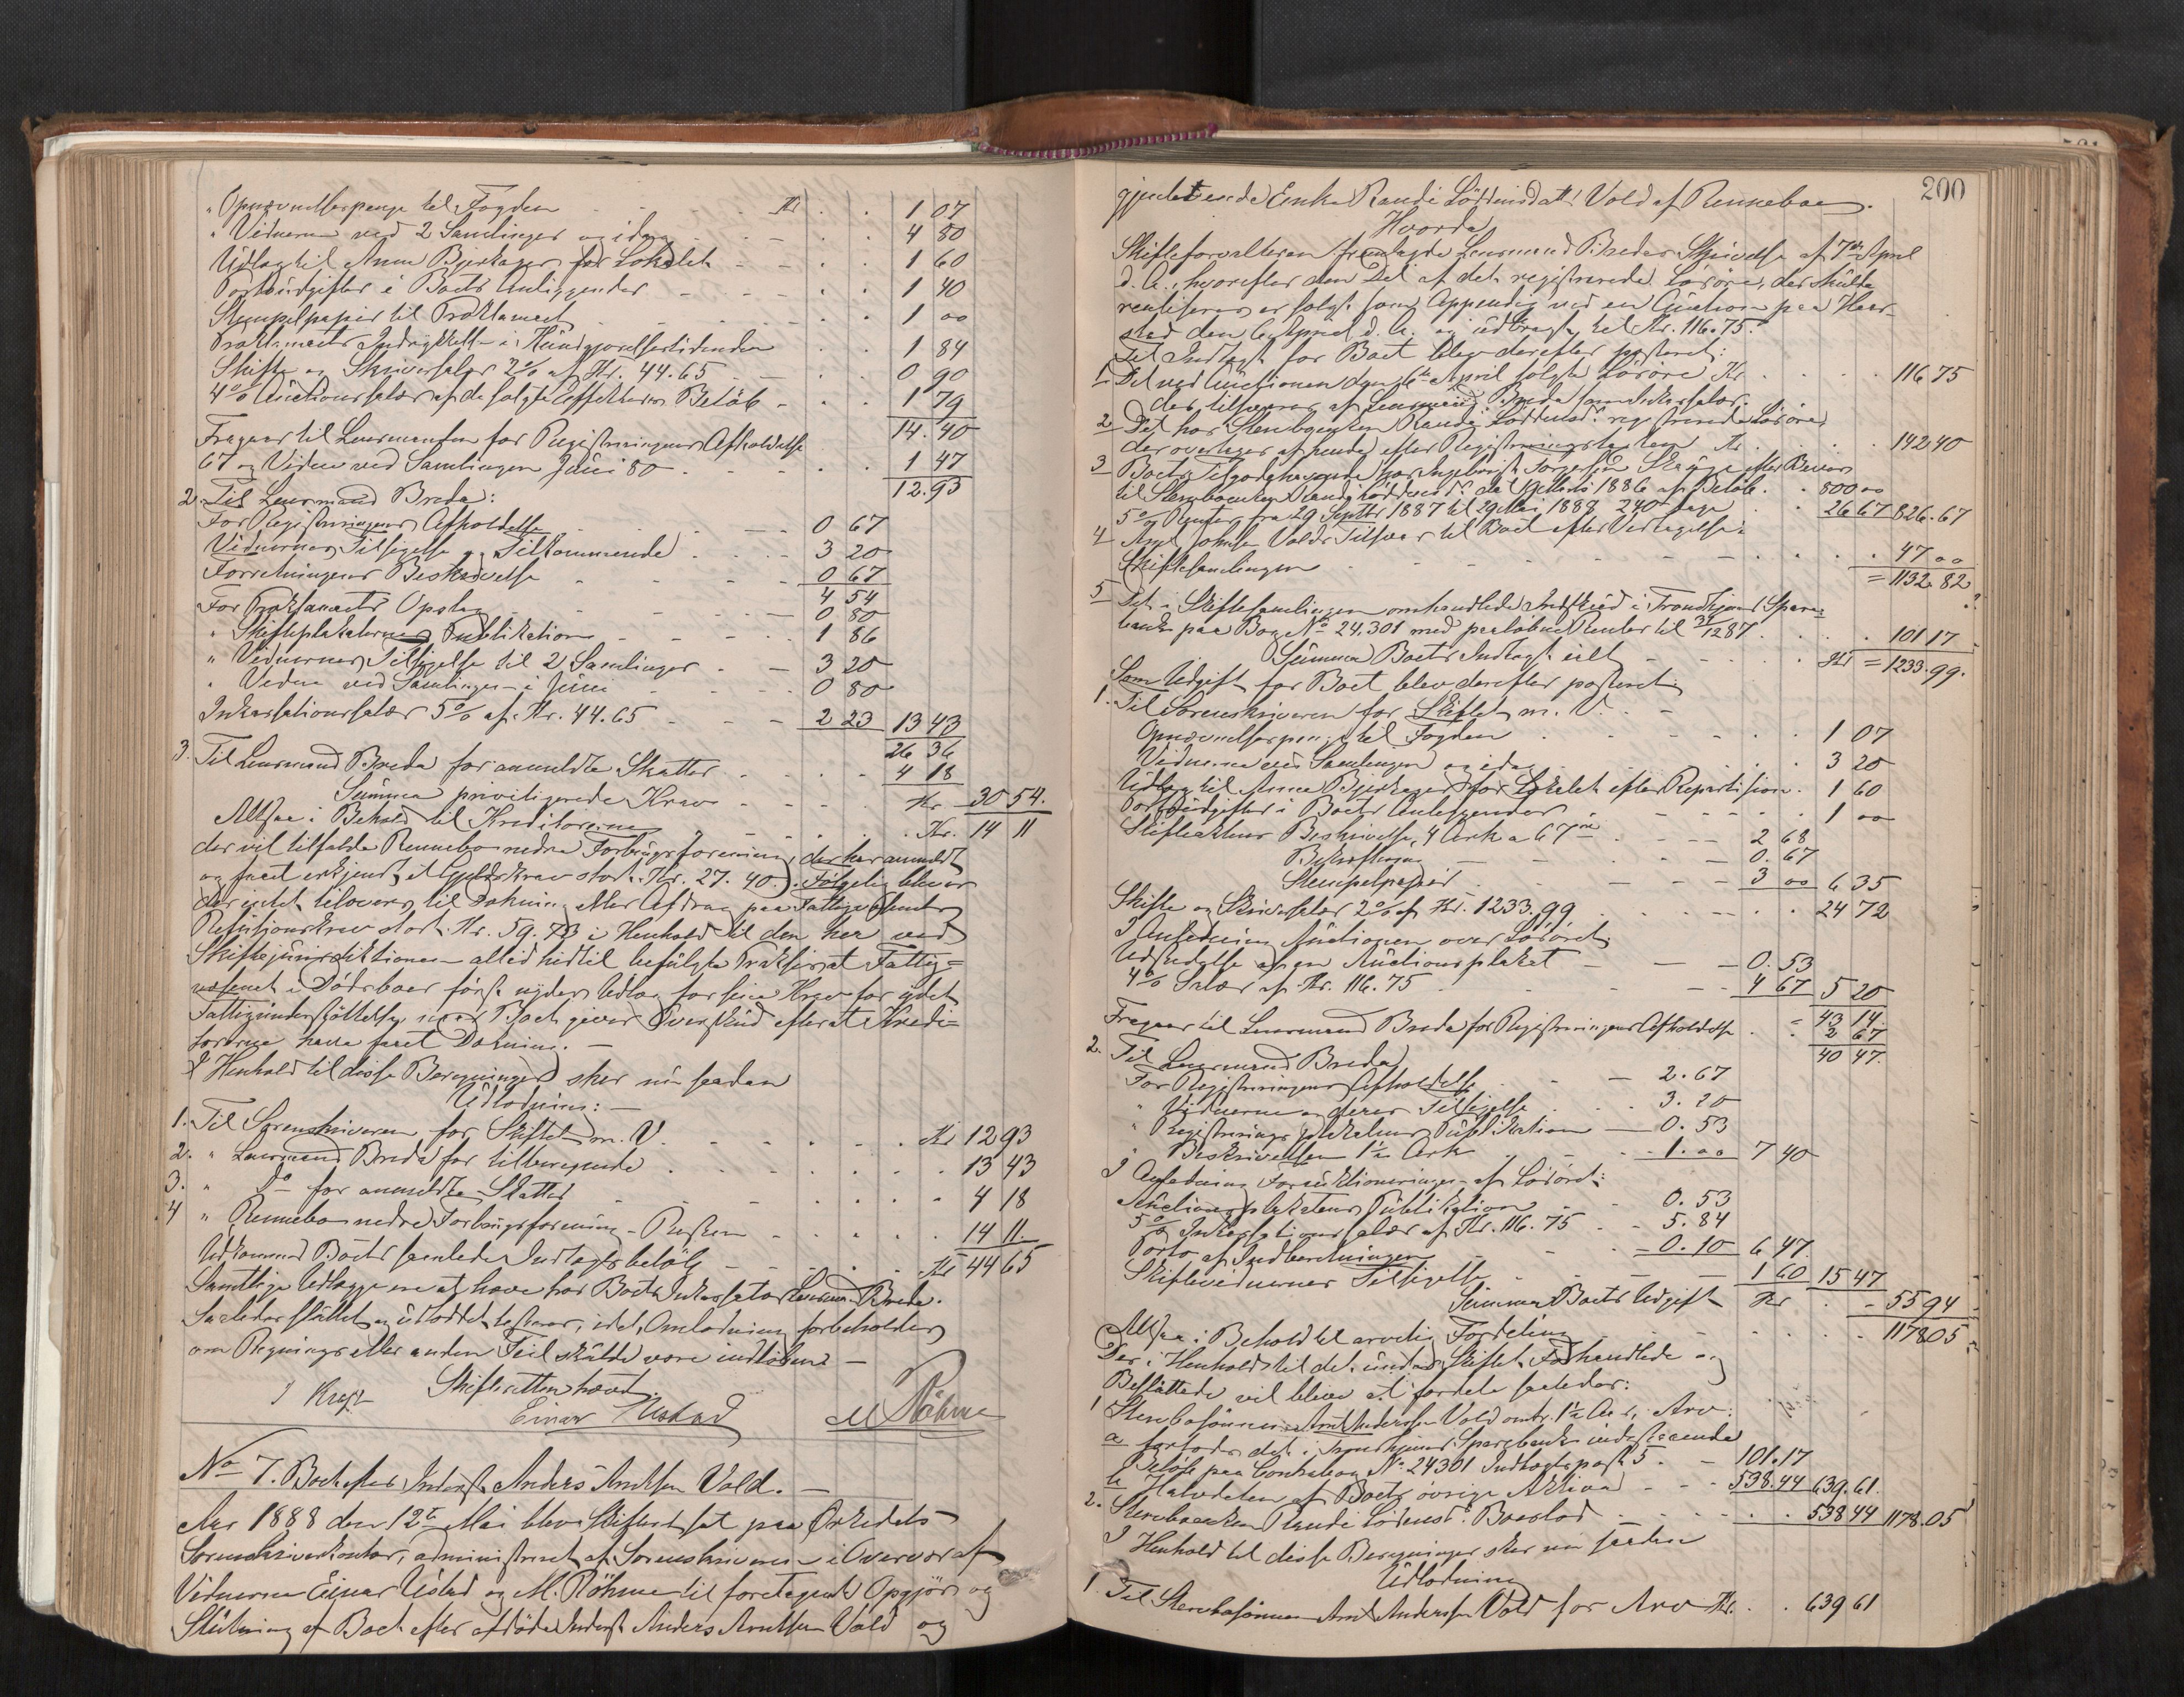 " Opnævnelsespenge til Fogden Kr 1 07
" Vidnerne ved 2 Samlinger og idag 4 80
Udlæg til Anne Bjerkager for Lokalet 1 60
Portoudgifter i Boets Anliggender 1 40
Stempelpapir til Proklamaet 1 00
Proklamaets Indrykkelse i Kundgjørelsestidenden 1 84
Skifte og Skriversalær 2% af Kr. 44.65 0 90
4% Auctionssalær af de solgte Effekters Beløb 1 79
14.40
Fragaar til Lensmanden for Registreringens Afholdelse
67 og Vidne ved Samlingen Juni 80 1 47
12.93
2. Til Lensmand Breda:
For Registreringens Afholdelse 0 67
Vidnernes Tilsigelse og Tilkommende 3 20
Forretningens Beskrivelse 0 67
4 54
For Proklamaets Opslag 0 80
" Skifteplakaternes Publikation 1 86
" Vidnernes Tilsigelse til 2 Samlinger 3 20
" Vidne ved Samlingen i Juni 0 80
Inkassationssalær 5% af Kr. 44.65 2 23 13 43
26 36
3. Til Lensmand Breda for anmeldte Skatter 4 18
Summa priviligerede Krav Kr 30 54.
Altsaa i Behold til Kreditorerne Kr. 14 11
der vil tilfalde Rennebo nedre Forbrugsforening, der har anmeldt
og faaet erkjendt et Gjeldskrav stort Kr. 27.40. Følgelig blever
der intet tilovers til Dækning eller Afdrag paa Fattigvæsenets
Refusionskrav stort Kr. 59.73 i Henhold til den her ved
Skiftejurisdiktionen altid hidtil befulgte Praksis at Fattig=
væsenet i Dødsboer først nyder Udlæg for sine Krav for ydet
Fattigunderstøttelse, naar Boet giver Overskud efterat Kredi=
torerne have faaet Dækning. —
I Henhold til disse Beregninger sker nu saadan
Udlodning: —
1. Til Sorenskriveren for Skiftet m. V. Kr 12 93
2. " Lensmand Breda for tilberegnede 13 43
3. " Do for anmeldte Skatter 4 18
4 " Rennebo nedre Forbrugsforening - Resten 14 11
Udkommer Boets samlede Indtægtsbeløb Kr 44 65
Samtlige Udlæggene at hæve hos Boets Inkassator Lensmand Breda.
Saaledes sluttet og udloddet testerer, idet Omlodning forbeholdes
om Regnings eller anden Feil skulde være indløben. —
Skifteretten hævet.
Einar Ustad M Röhme
No 7. Boet efter Inderst Anders Arntsen Vold. —
Aar 1888 den 12te Mai blev Skifteret sat paa Orkedals
Sorenskriverkontor, administreret af Sorenskriveren i Overvær af
Vidnerne Einar Ustad og M. Röhme til foretagende Opgjør og
Slutning af Boet efter afdøde Inderst Anders Arntsen Vold og
200
gjenlevende Enke Randi Lødensdatt. Vold af Rennebo.
Hvorda
Skifteforvalteren fremlagde Lensmand Bredes Skrivelse af 7de April
d. A., hvorefter den Del af det registrerede Løsøre, der skulde
realiseres, er solgt som Appendix ved en Auction paa Haar=
stad den 6 April d. A. og udbragt til Kr. 116.75.
Til Indtægt for Boet blev derefter posteret:
1 Det ved Auctionen den 6te April solgte Løsøre Kr 116 75
der tilsvares af Lensmand Breda som Inkassator.
2 Det hos Stervboenken Randi Lødensd. registrerede Løsøre,
der overtages af hende efter Registreringstaksten Kr 142 40
3 Boets Tilgodehavende hos Ingebrigt Torgersen efter Bevis
til Stervboenken Randi Lødensd. 1886 af Beløb 800 00
5% Renter fra 29 Septbr 1887 til 29 Mai 1888 240 Dage 26 67 826.67
4 Johnsen Volds Tilsvar til Boet efter Vedtagelse i
Skiftesamlingen 47 00
= 1132.82
5 Det i Skiftesamlingen omhandlede Indskud i Trondhjems Spare=
bank paa Bog No 24.301 med paaløbne Renter til 31/12 87 101 17
Summa Boets Indtægt ialt Kr = 1233.99.
Som Udgift for Boet blev derefter posteret:
1. Til Sorenskriveren for Skiftet m. V.
Opnævnelsespenge til Fogden 1 07
Vidnerne ved Samlingen og idag 3 20
Udlæg til Anne Bjerkager for Lokalet efter Repartision 1 60
Portoudgifter i Boets Anliggender 1 00
Skifteaktens Beskrivelse, 4 Ark a 67 øre 2 68
Bekræftelse 0.67
Stempelpapir 3 00 6 35
Skifte og Skriversalær 2% af Kr. 1233.99 24 72
I Anledning Auctionen over Løsøret:
Udstedelse af en Auctionsplakat 0.53
4% Salær af Kr. 116.75 4 67 5 20
= 43 14
Fragaar til Lensmand Breda for Registreringens Afholdelse 2 67
40 47.
2. Til Lensmand Breda
For Registreringens Afholdelse 2.67
" Vidnerne og deres Tilsigelse 3.20
" Registrerings plakatens Publikation 0.53
" Beskrivelsen 1½ Ark 1.00 7 40
I Anledning Forauktioneringen af Løsøret:
Auctionsplakatens Publikation 0.53
5% Inkassationssalær af Kr. 116.75 5.84
Porto af Indberetningen 0.10 6 47.
Skiftevidnernes Tilsigelse 1 60 15 47
Summa Boets Udgift Kr 55 94
Altsaa i Behold til arvelig Fordeling 1178 05
Der i Henhold til det under Skiftet Forhandlede og
Besluttede vil blive at fordele saaledes:
1 Stervbosønnen Arnt Anderssen Vold omtr. 1½ Aar, Arv:
a forlods det i Trondhjems Sparebank indestaaende
Beløb paa Contrabog No 24301 Indtægtspost 5. 101.17
b Halvdelen af Boets øvrige Aktiva 538.44 639.61.
2. Stervboenken Randi Lødensd. Boeslod 538 44 1178.05
I Henhold til disse Beregninger sker nu saadan
Udlodning
1. Til Stervbosønnen Arnt Anderssen Vold for Arv Kr. 639 61